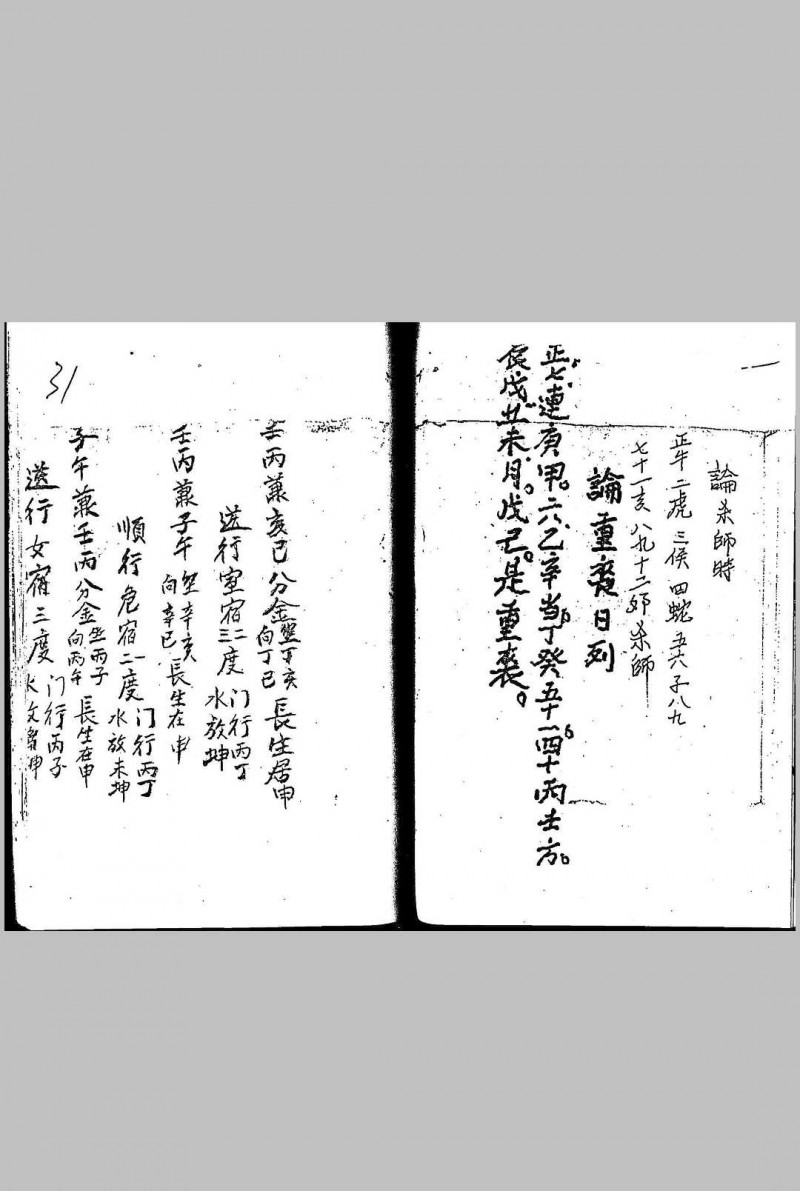 論杀師時
正牛二虎三侯四蛇五六子八九
七十一亥八九十二卯杀師
論重喪日列
正七連庚甲。六乙辛当丁癸五十一四十丙壬方。
辰戌丑未月。戊己是重喪。
31
壬丙兼亥巳分金坐丁亥向丁巳長生居申
逆行室宿三二度门行丙丁水放坤
壬丙兼子午坐辛亥向辛巳長生在申
順行危宿二一度门行丙丁水放未坤
子午兼壬丙分金坐丙子向丙午長生在申
逆行女宿三度门行丙子